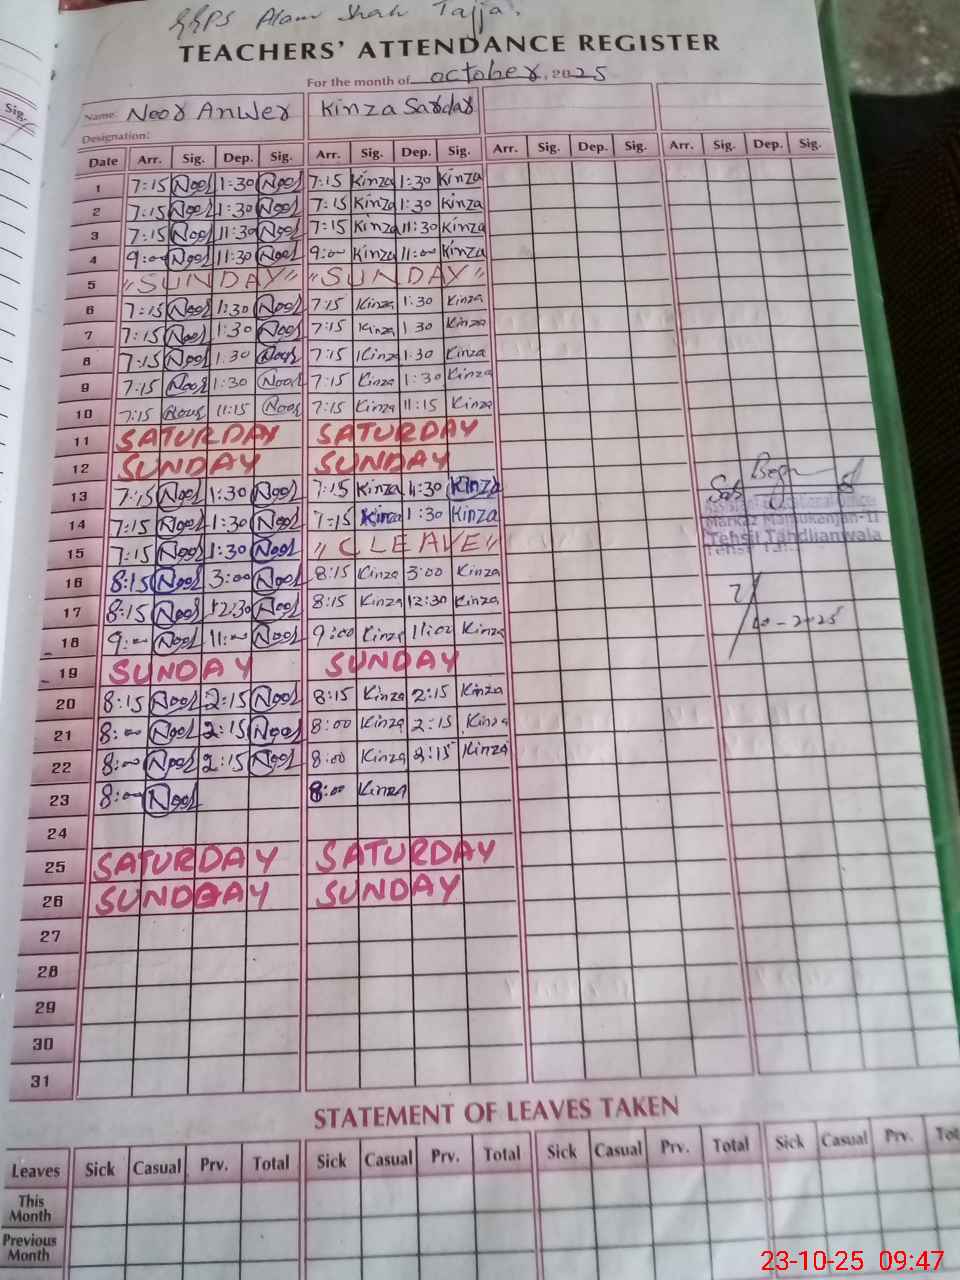 GGPS Alam Shah Tajja.
TEACHERS' ATTENDANCE REGISTER
For the month of October, 2025
Sig.
Name: Noor Anwer Kinza Sardar
Designation:
Date Arr. Sig. Dep. Sig. Arr. Sig. Dep. Sig. Arr. Sig. Dep. Sig. Arr. Sig. Dep. Sig.
1 7:15 Noor 1:30 Noor 7:15 Kinza 1:30 Kinza
2 7:15 Noor 1:30 Noor 7:15 Kinza 1:30 Kinza
3 7:15 Noor 11:30 Noor 7:15 Kinza 11:30 Kinza
4 9:00 Noor 11:30 Noor 9:00 Kinza 11:00 Kinza
5 "SUNDAY" "SUNDAY"
6 7:15 Noor 1:30 Noor 7:15 Kinza 1:30 Kinza
7 7:15 Noor 1:30 Noor 7:15 Kinza 1 30 Kinza
8 7:15 Noor 1:30 Noor 7:15 Kinza 1:30 Kinza
9 7:15 Noor 1:30 Noor 7:15 Kinza 1:30 Kinza
10 7:15 Noor 11:15 Noor 7:15 Kinza 11:15 Kinza
11 SATURDAY SATURDAY
12 SUNDAY SUNDAY
13 7:15 Noor 1:30 Noor 7:15 Kinza 1:30 Kinza
14 7:15 Noor 1:30 Noor 7:15 Kinza 1:30 Kinza
15 7:15 Noor 1:30 Noor "C LEAVE"
Markaz Mamukanjan-II
Tehsil Tandlianwala
16 8:15 Noor 3:00 Noor 8:15 Kinza 3:00 Kinza
17 8:15 Noor 12:30 Noor 8:15 Kinza 12:30 Kinza
18 9:00 Noor 11:00 Noor 9:00 Kinza 11:00 Kinza
19 SUNDAY SUNDAY
20 8:15 Noor 2:15 Noor 8:15 Kinza 2:15 Kinza
21 8:00 Noor 2:15 Noor 8:00 Kinza 2:15 Kinza
22 8:00 Noor 2:15 Noor 8:00 Kinza 2:15 Kinza
23 8:00 Noor 8:00 Kinza
24
25 SATURDAY SATURDAY
26 SUNDAY SUNDAY
27
28
29
30
31
STATEMENT OF LEAVES TAKEN
Leaves Sick Casual Prv. Total Sick Casual Prv. Total Sick Casual Prv. Total Sick Casual Prv.
This Month
Previous Month
23-10-25 09:47